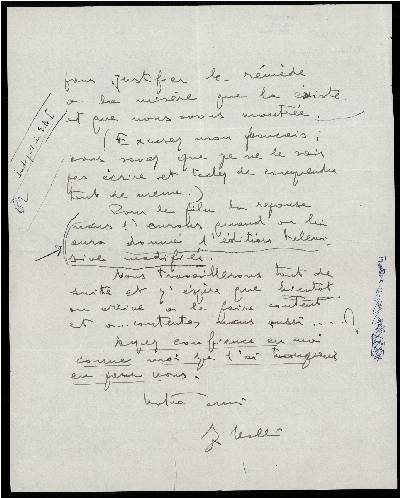 pour justifier le remède
a la misère que la existe
et que nous avons montrée.
(Excusez mon français;
vous savez que je ne le sais
pas écrire et tachez de comprendre
tout de même.)
Pour le film la reponse
nous l'aurons quand on lui
aura donné l'édition
sive modifiée.
Nous travaillerons tout de
suite et j'espère que bientot
on arrive a le faire content
et a...contenter nous aussi....
Ayez confiance en moi
comme moi je l'ai toujours
eu pour vous.
Votre ami